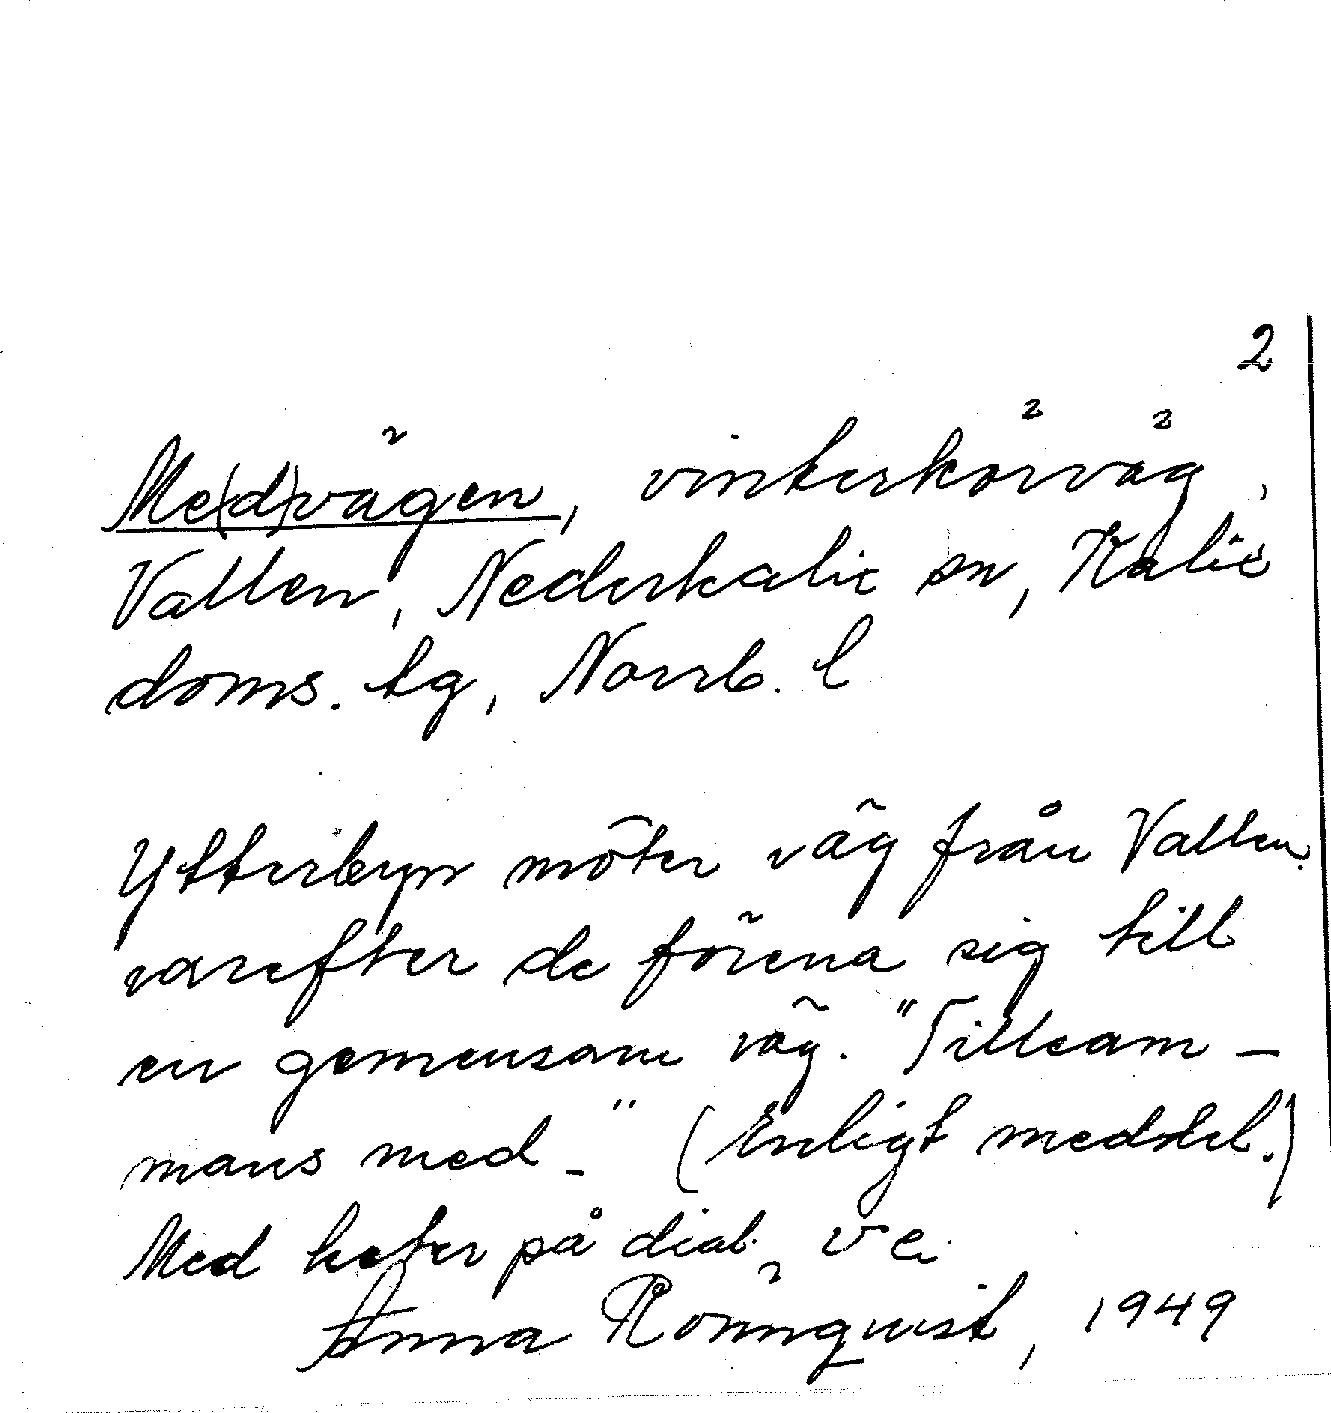 2
Me(d)vägen, vinterkörväg,
Vallen, Nederkalix sn, Kalix
doms. tg, Norrb. l
Ytterbyn möter väg från Vallen
varefter de förena sig till
en gemensam väg. "Tillsam-
mans med -" (Enligt meddel.)
Med heter på dial. ve
Anna Rönnqvist, 1949